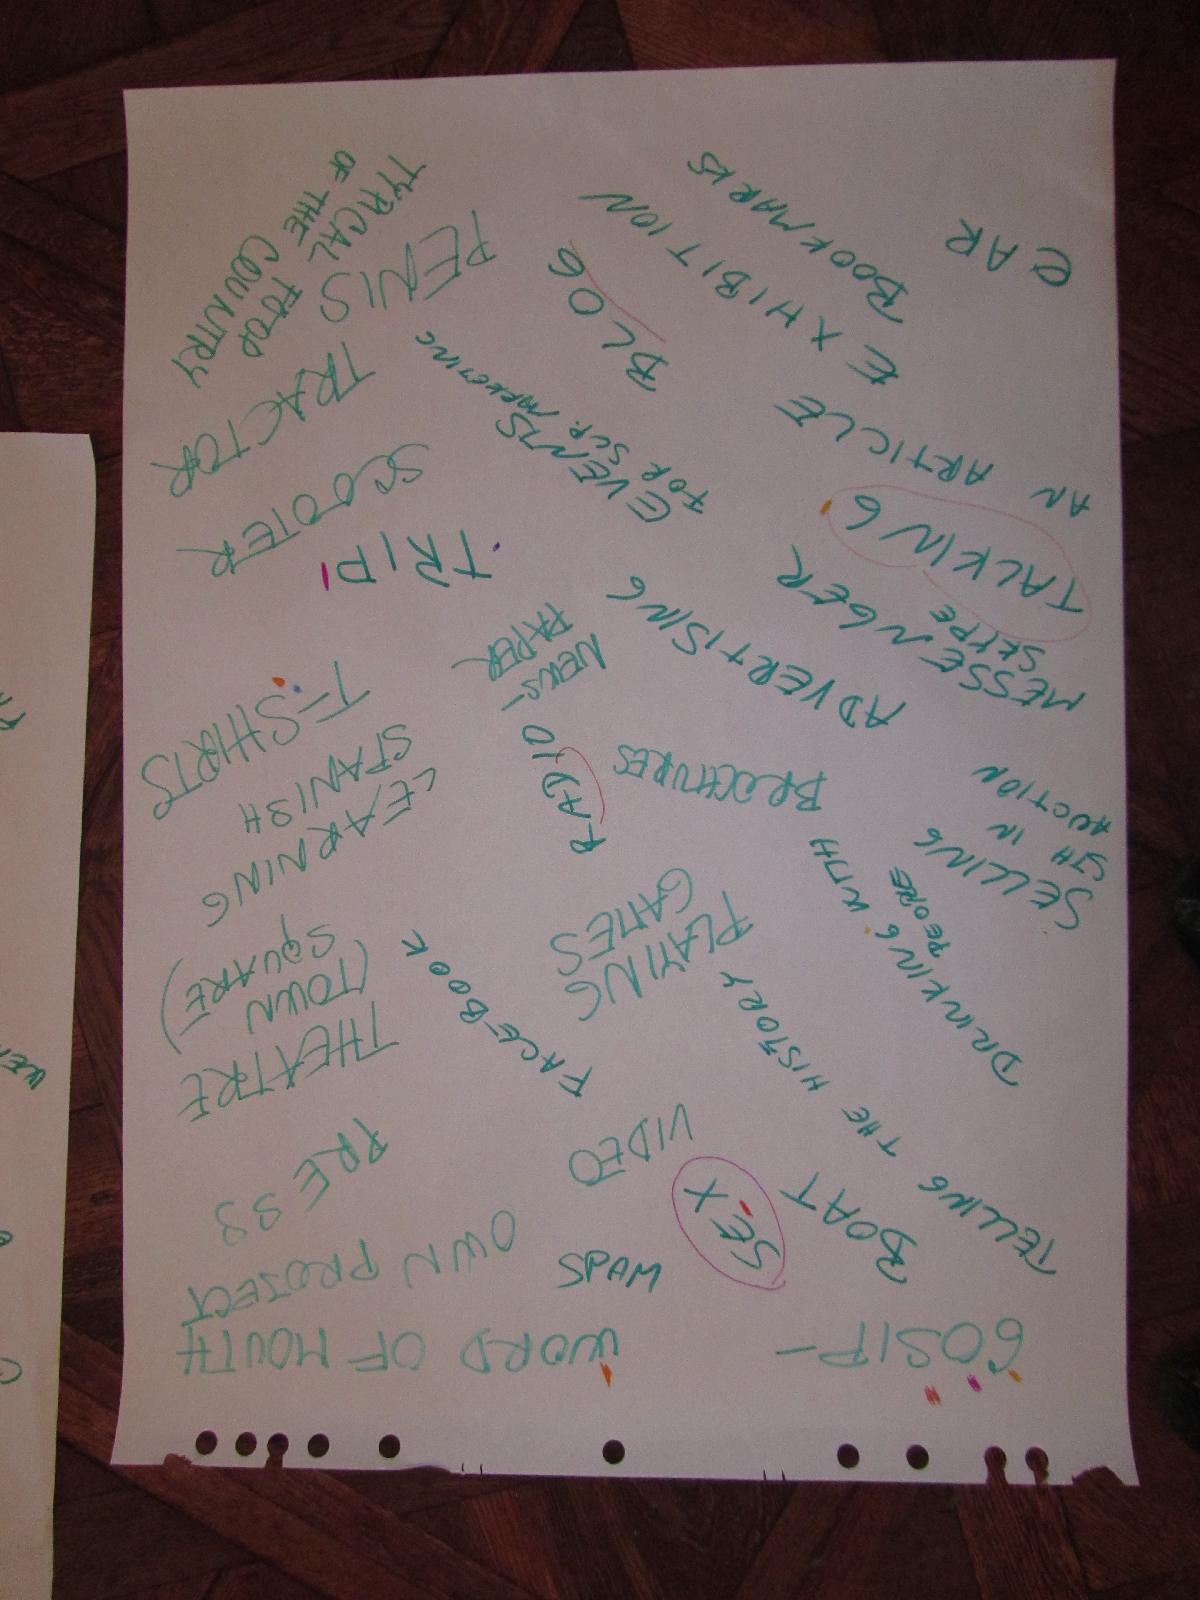 GOSIP-
WORD OF MOUTH
TELLING THE HISTORY
BOAT
SEX
MAPS
OWN PROJECT
VIDEO
PRESS
DRINKING WITH
PEOPLE
PLAYING
GAMES
FACE-BOOK
THEATRE
(TOWN
SQUARE)
SELLING
STH IN
AUCTION
BROCHURES
RADIO
LEARNING
SPANISH
T-SHIRTS
MESSENGER
SKYPE
ADVERTISING
NEWS-
PAPER
TALKING
TRIP
SCOOTER
AN ARTICLE
EVENTS
FOR SCP. MARKETING
TRACTOR
EXHIBITION
BLOG
PENIS
CAR
BOOKMARKS
TYPICAL FOOD
OF THE COUNTRY